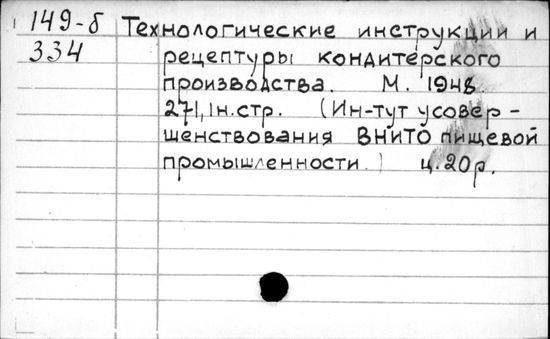 149-б Технологические инструкции и
334 рецептуры кондитерского
производства. М. 1948.
271, 1н.стр. (Ин-тут усовер-
шенствования ВНИТО пищевой
промышленности.) ц. 20р.